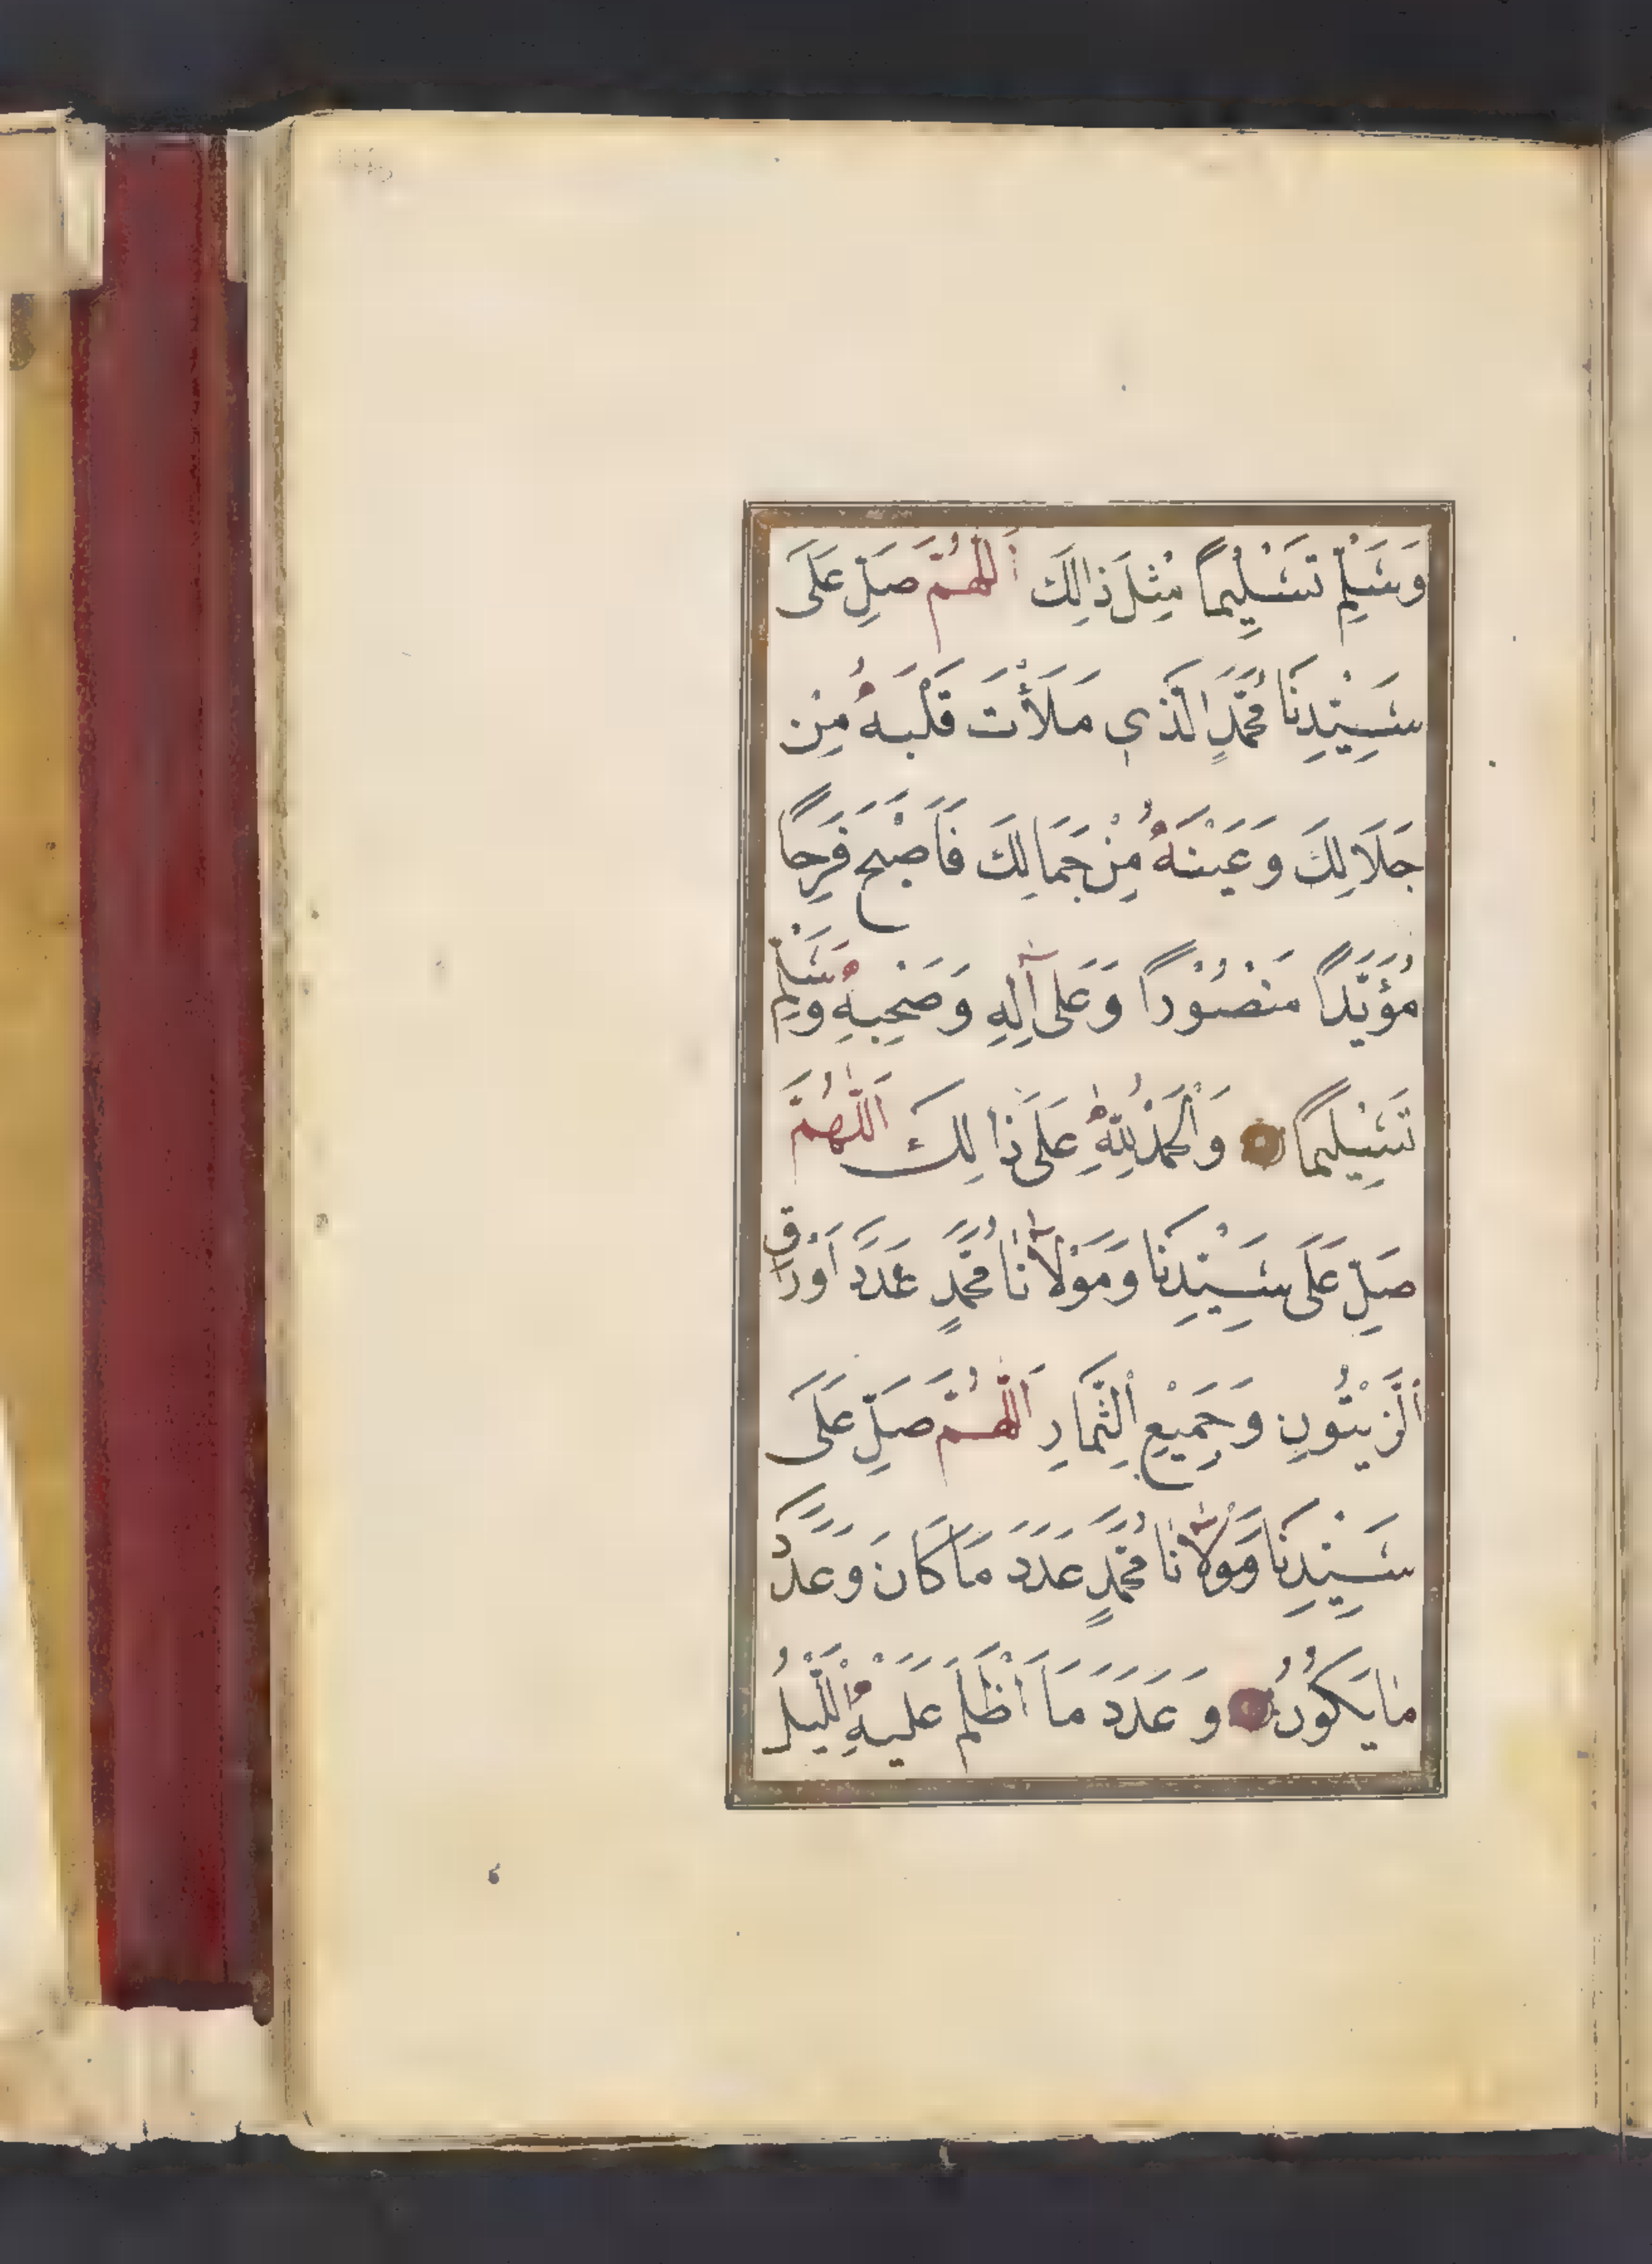 وَسَلِّمْ تَسْلِيمًا مِثْلَ ذٰلِكَ اَللّٰهُمَّ صَلِّ عَلَى
سَيِّدِنَا مُحَمَّدٍ الَّذِي مَلَأْتَ قَلْبَهُ مِنْ
جَلَالِكَ وَعَيْنَهُ مِنْ جَمَالِكَ فَاَصْبَحَ فَرِحًا
مُؤَيَّدًا مَنْصُوْرًا وَعَلَى آلِهِ وَصَحْبِهِ وَسَلِّمْ
تَسْلِيمًا وَالْحَمْدُ لِلّٰهِ عَلَى ذَالِكَ اَللّٰهُمَّ
صَلِّ عَلَى سَيِّدِنَا وَمَوْلَانَا مُحَمَّدٍ عَدَدَ اَوْرَاقِ
اَلزَّيْتُونِ وَجَمِيْعِ الثِّمَارِ اَللّٰهُمَّ صَلِّ عَلَى
سَيِّدِنَا وَمَوْلَانَا مُحَمَّدٍ عَدَدَ مَا كَانَ وَعَدَدَ
مَا يَكُوْنُ وَعَدَدَ مَا اَظْلَمَ عَلَيْهِ اللَّيْلُ